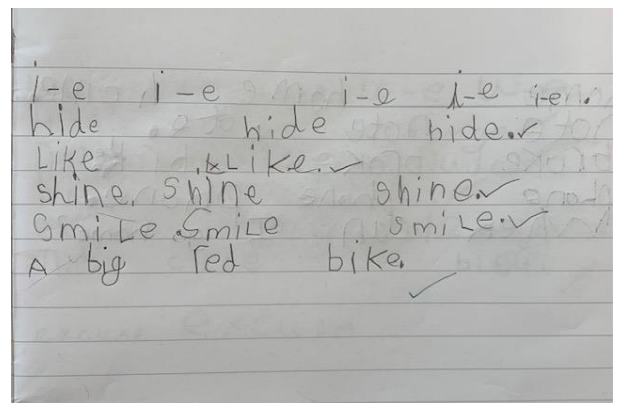 i-e i-e i-e i-e i-e.
hide hide hide.✓
Like Like.✓
shine. shine shine.✓
SmiLe SmiLe smiLe.✓
A big red bike.
✓